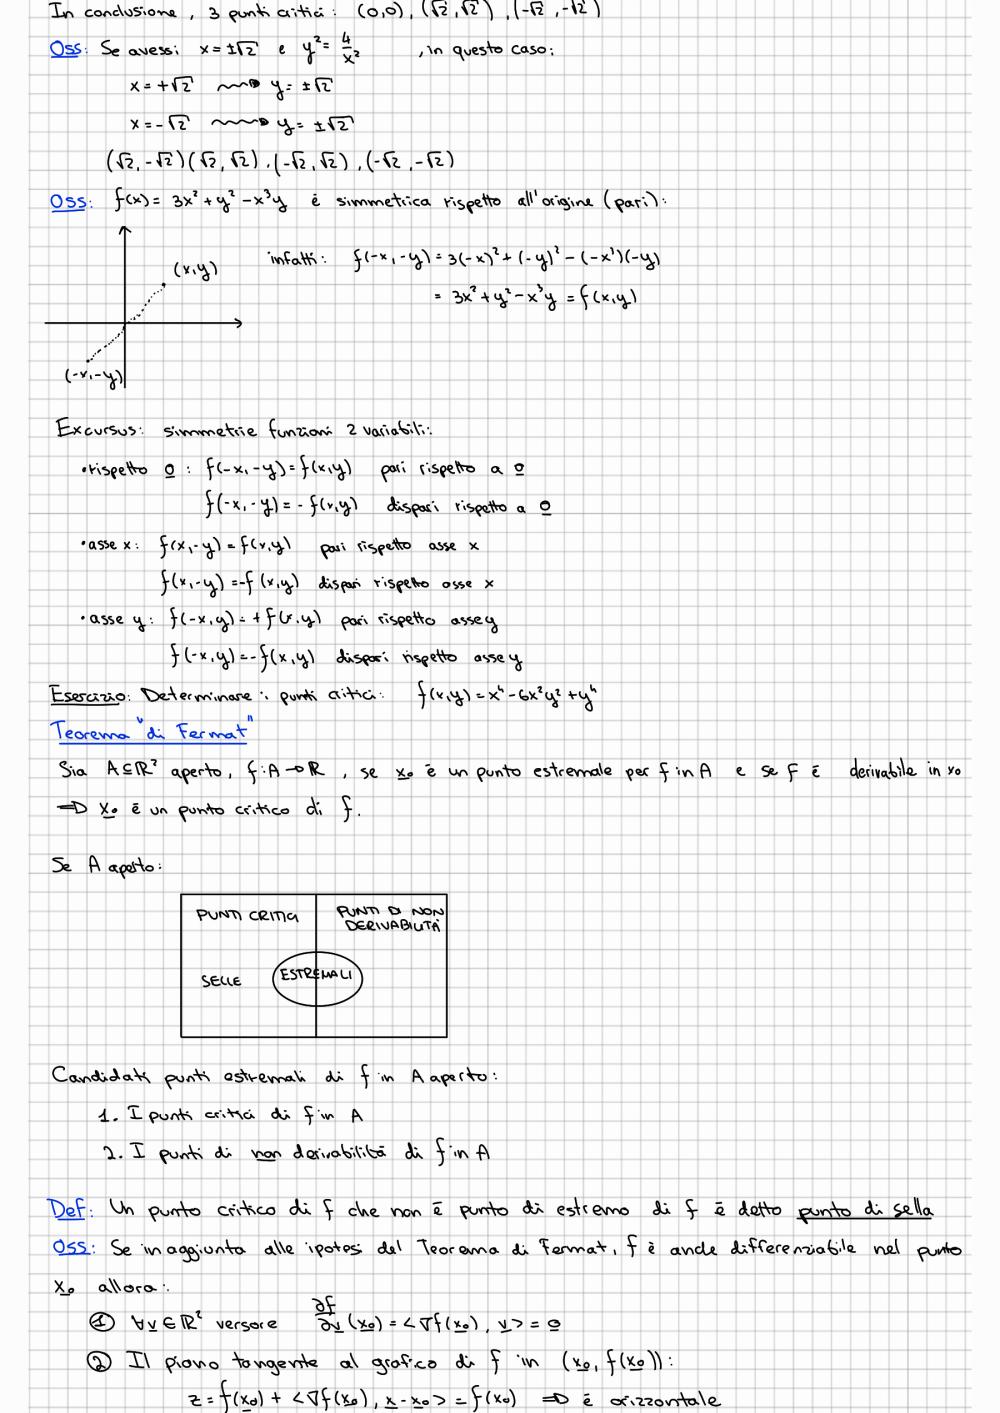 In conclusione, 3 punti critici: (0,0), (√2,√2), (-√2,-√2)
Oss: Se avessi x=±√2 e y²=4/x² , in questo caso:
x=+√2 ⇝ y=±√2
x=-√2 ⇝ y=±√2
(√2,-√2)(√2,√2),(-√2,√2),(-√2,-√2)
Oss: f(x)= 3x²+y²-x³y è simmetrica rispetto all'origine (pari):
infatti: f(-x,-y)=3(-x)²+(-y)²-(-x³)(-y)
(x,y)
= 3x²+y²-x³y = f(x,y)
(-x,-y)
Excursus: simmetrie funzioni 2 variabili:
•rispetto 0: f(-x,-y)=f(x,y) pari rispetto a 0
f(-x,-y)=-f(x,y) dispari rispetto a 0
•asse x: f(x,-y)=f(x,y) pari rispetto asse x
f(x,-y)=-f(x,y) dispari rispetto asse x
•asse y: f(-x,y)=+f(x,y) pari rispetto asse y
f(-x,y)=-f(x,y) dispari rispetto asse y
Esercizio: Determinare i punti critici: f(x,y)=x⁴-6x²y²+y⁴
Teorema "di Fermat"
Sia A⊆ℝ² aperto, f:A→ℝ, se x₀ è un punto estremale per f in A e se f è derivabile in x₀
⇒ x₀ è un punto critico di f.
Se A aperto:
PUNTI CRITICI
PUNTI DI NON
DERIVABILITÀ
SELLE
ESTREMALI
Candidati punti estremali di f in A aperto:
1. I punti critici di f in A
2. I punti di non derivabilità di f in A
Def: Un punto critico di f che non è punto di estremo di f è detto punto di sella
Oss: Se in aggiunta alle ipotesi del Teorema di Fermat, f è anche differenziabile nel punto
x₀ allora:
① ∀v∈ℝ² versore ∂f/∂v(x₀)=<∇f(x₀), v>=0
② Il piano tangente al grafico di f in (x₀, f(x₀)):
z=f(x₀)+<∇f(x₀), x-x₀>=f(x₀) ⇒ è orizzontale